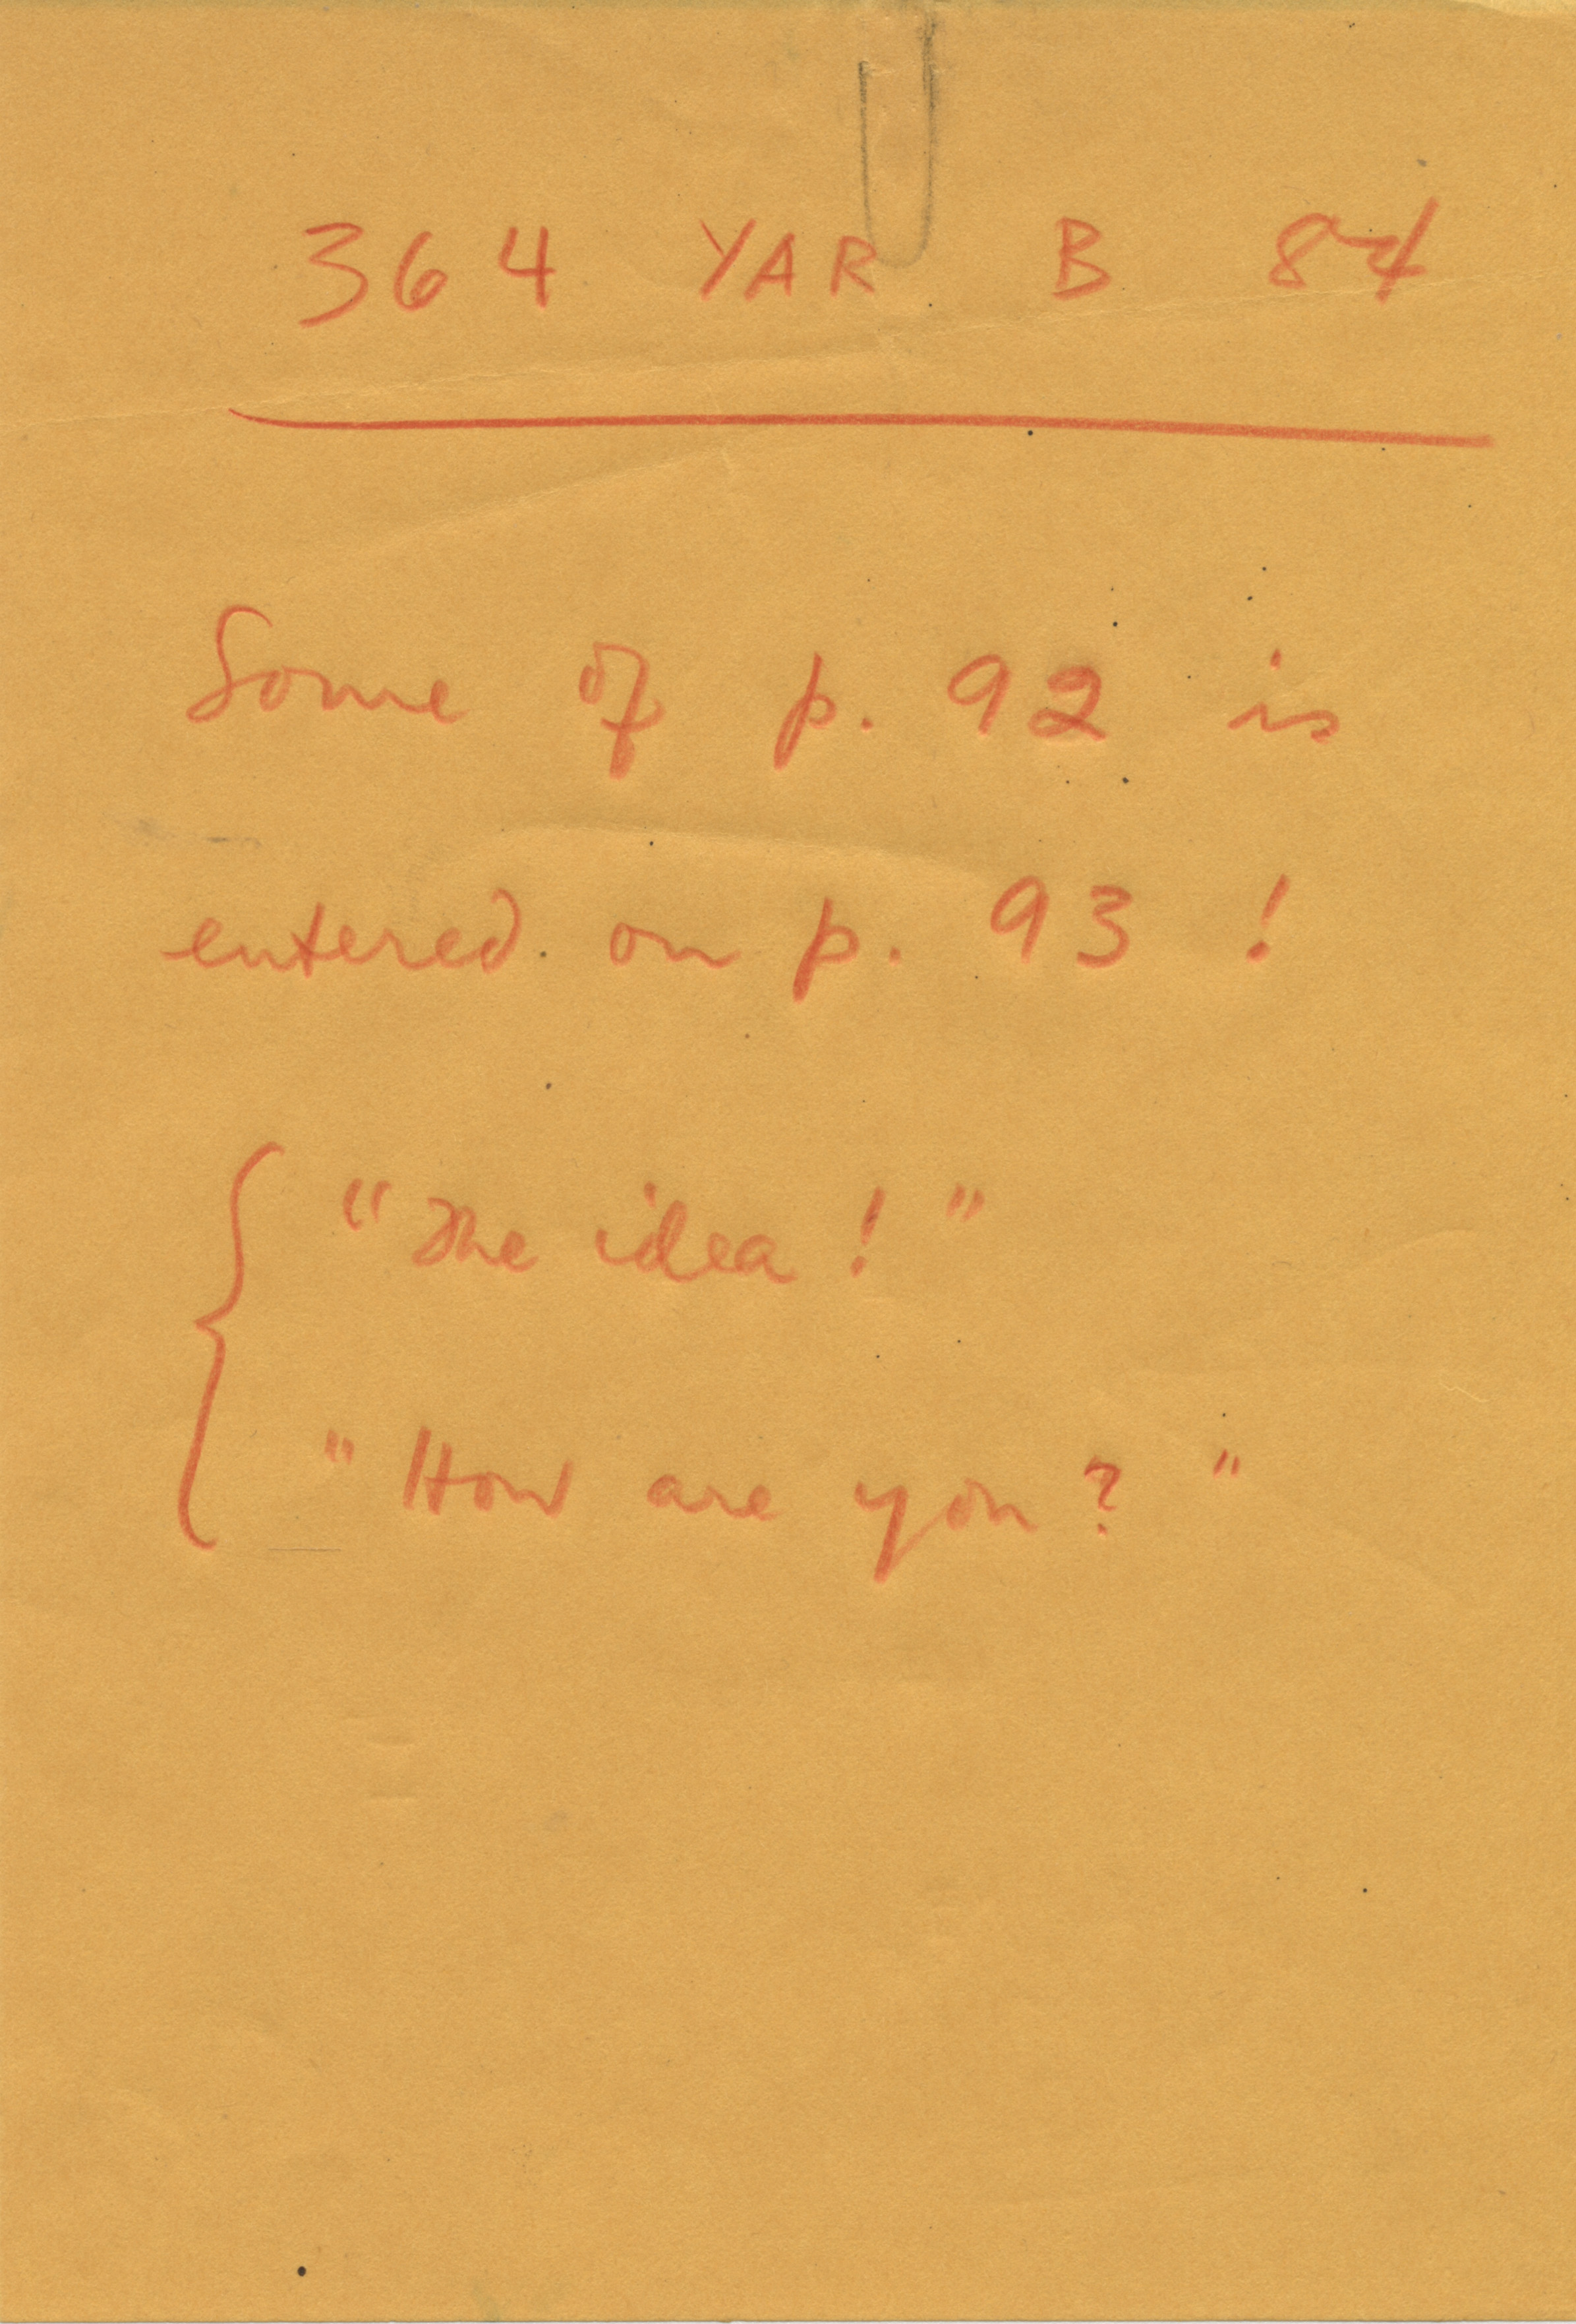 364 YAR B 84
Some of p. 92 is
entered on p. 93 !
"The idea ! "
" How are you ? "